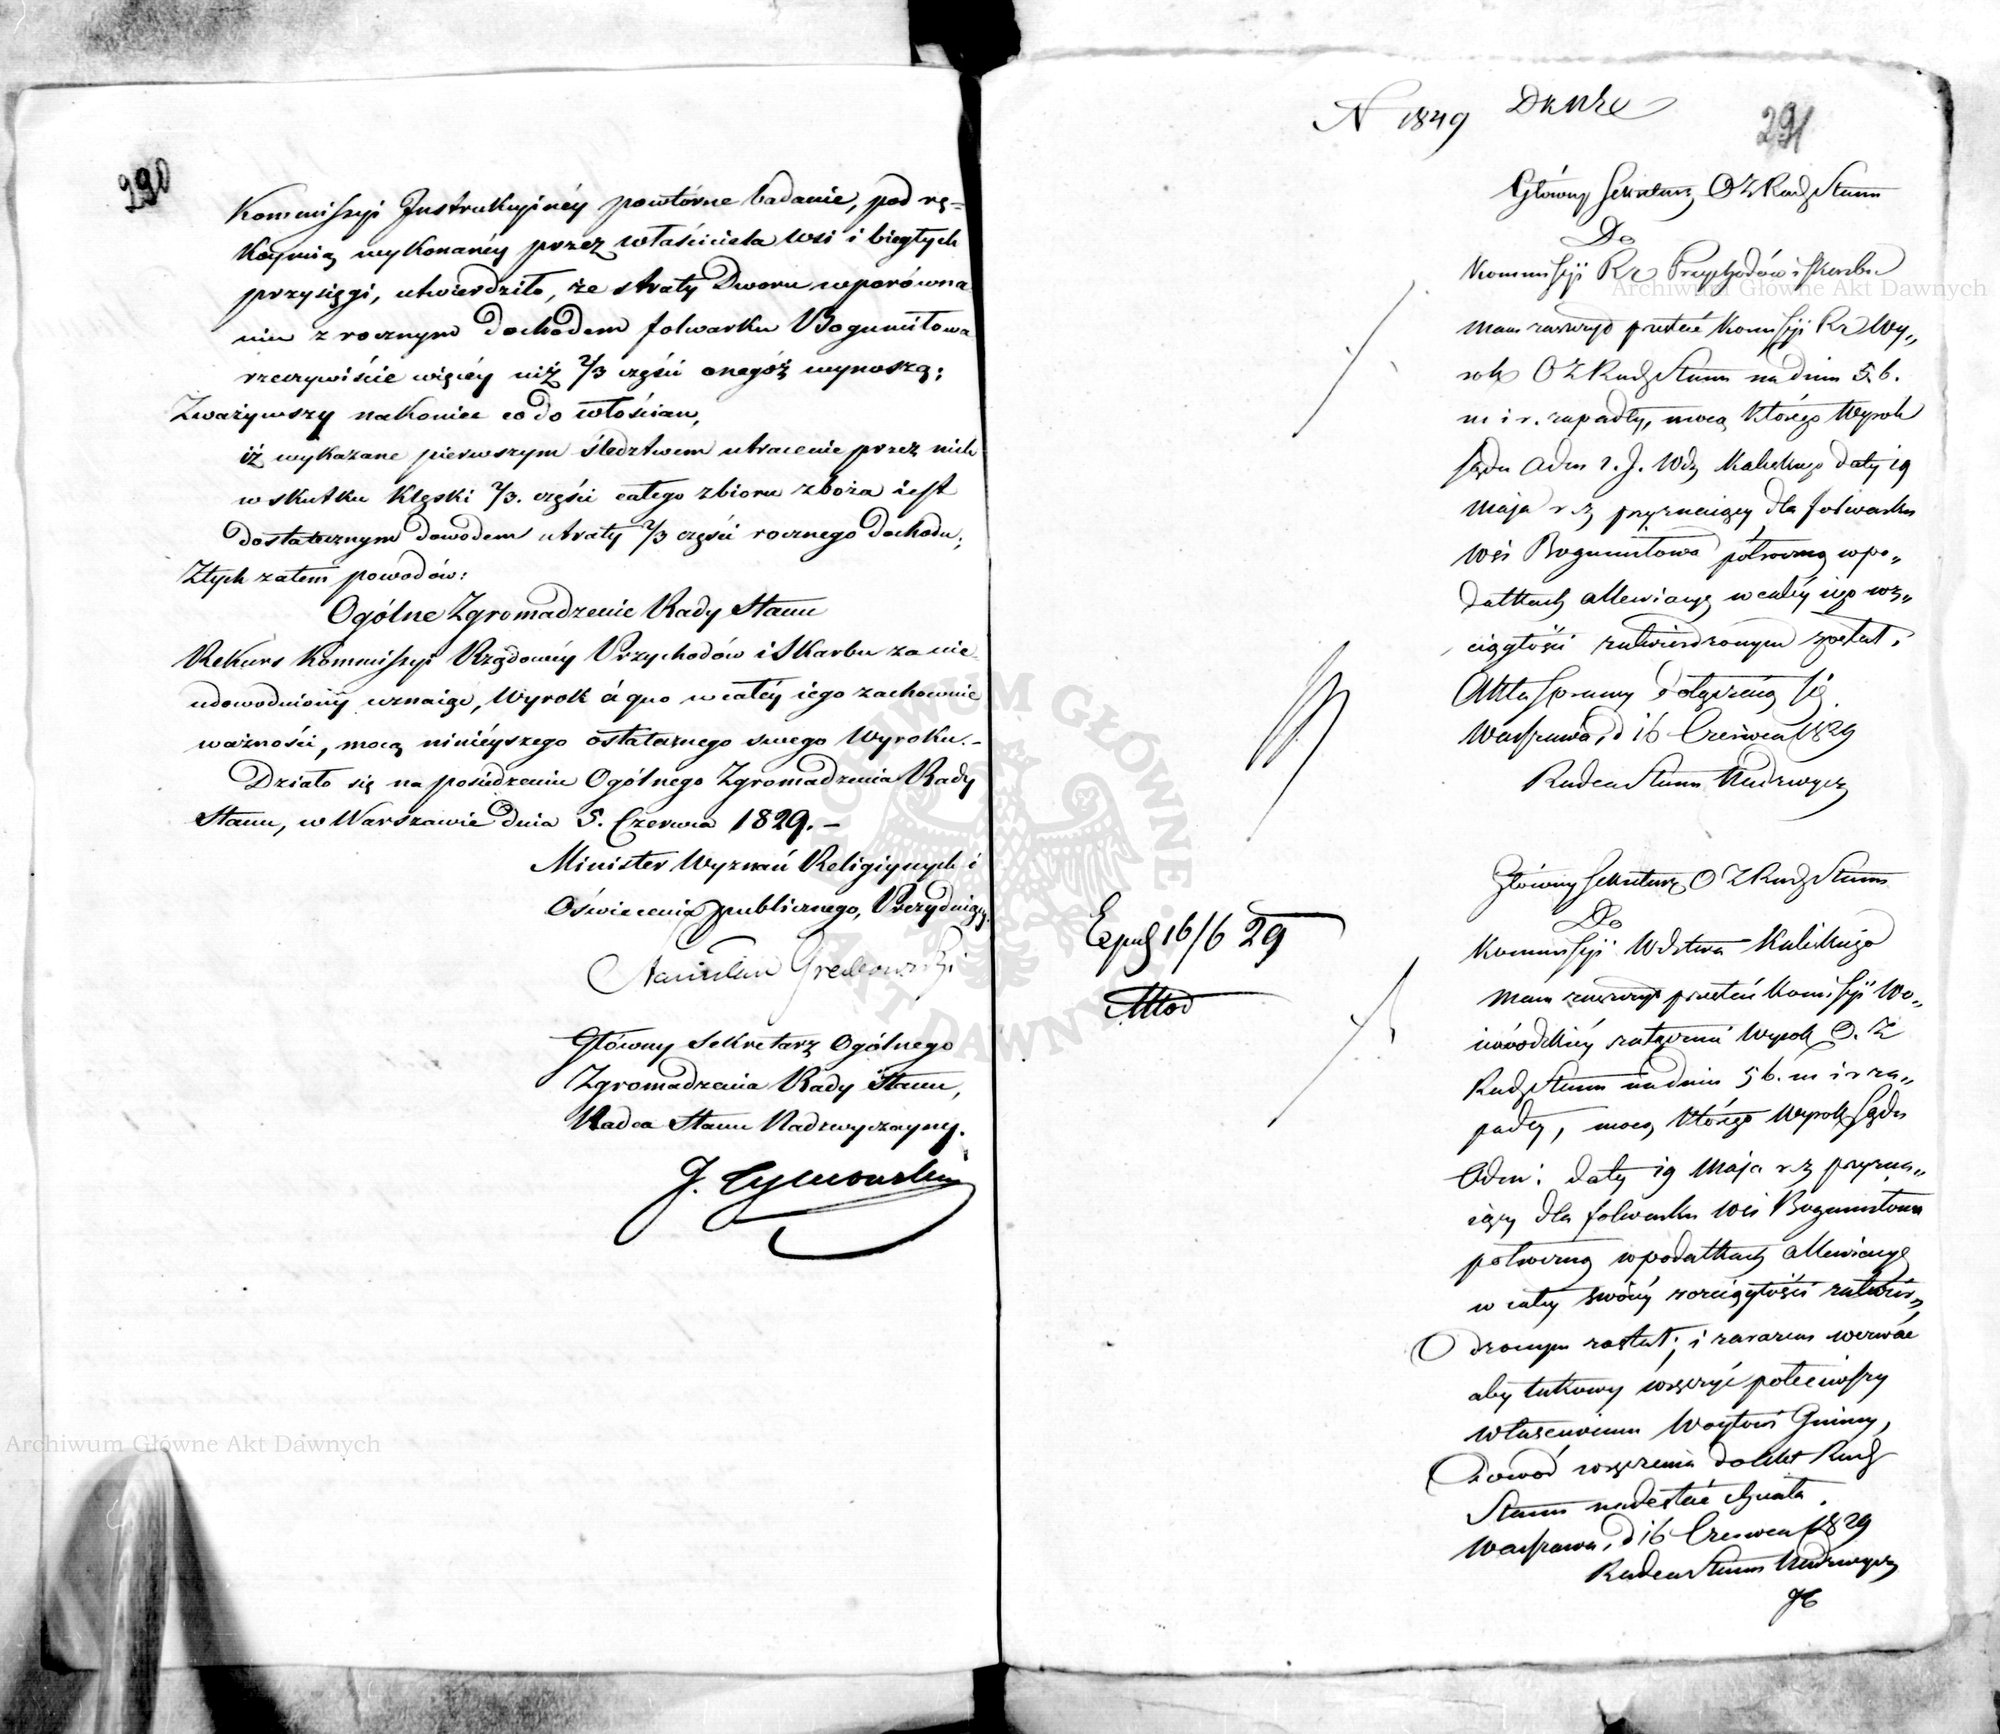 290
Kommissyi Instrukcyinéy powtórne badanie, pod rę-
koymią wykonanéy przez właściciela wsi i biegłych
przysięgi, utwierdziło, że straty Dworu w porówna
niu z rocznym dochodem folwarku Bogumiłowa
rzeczywiście więcéy niż 2/3 części onegóż wynoszą;
Zważywszy nakoniec co do włościan,
iż wykazane pierwszym śledztwem utracenie przez nich
w skutku klęski 2/3. części całego zbioru zboża iest
dostatecznym dowodem utraty 2/3 części rocznego dochodu;
Z tych zatem powodów:
Ogólne Zgromadzenie Rady Stanu
Rekurs Kommissyi Rządowéy Przychodów i Skarbu za nie-
udowodniony uznaiąc, Wyrok á quo w całéy iego zachowuie
ważności, mocą ninieyszego ostatecznego swego Wyroku.-
Działo się na posiedzeniu Ogólnego Zgromadzenia Rady
Stanu, w Warszawie dnia 5. Czerwca 1829.-
Minister Wyznań Religiynych i
Oświecenia publicznego, Prezyduiący
Stanisław Grabowski
Główny Sekretarz Ogólnego
Zgromadzenia Rady Stanu,
Radca Stanu Nadzwyczayny.
J. Tymowski
N 1849
291
Główny Sekretarz O Z Rady Stanu
Do
Kommissyi Rz Przychodów i Skarbu
Mam zaszczyt przesłać Komissyi Rz Wy„
rok O Z Rady Stanu na dniu 5. b.
m i r. zapadły, mocą którego Wyrok
Sądu Adm I. J. Wdz Kaliskiego daty 19
Maja r z przyznaiący dla folwarku
Wsi Bogumiłowa półroczną w po„
datkach allewiacyę w całéy iego roz„
ciągłości zatwierdzonym został.
Akta sprawy dołączaią się.
Warszawa, d 16 Czerwca 1829
Radca Stanu Nadzwycz
Główny Sekretarz O Z Rady Stanu
Do
Kommissyi Wdztwa Kaliskiego
Exped 16/6 29
Mam zaszczyt przesłać Komissyi Wo„
iewódzkiéy załączony Wyrok O. Z
Rady Stanu na dniu 5 b. m i r za„
padły, mocą którego Wyrok Sądu
Adm: daty 19 Maja r z przyzna„
iący dla folwarku Wsi Bogumiłowa
półroczną w podatkach allewiacyę
w całéy swoiéy rozciągłości zatwier„
dzonym został; i zarazem wezwać
aby takowy wręczyć poleciwszy
właściwemu Woytowi Gminy,
Dowód wręczenia do Akt Rady
Stanu nadesłać chciała.
Warszawa, d 16 Czerwca 1829
Radca Stanu Nadzwycz
Archiwum Główne Akt Dawnych
Archiwum Główne Akt Dawnych
ARCHIWUM GŁÓWNE AKT DAWNYCH